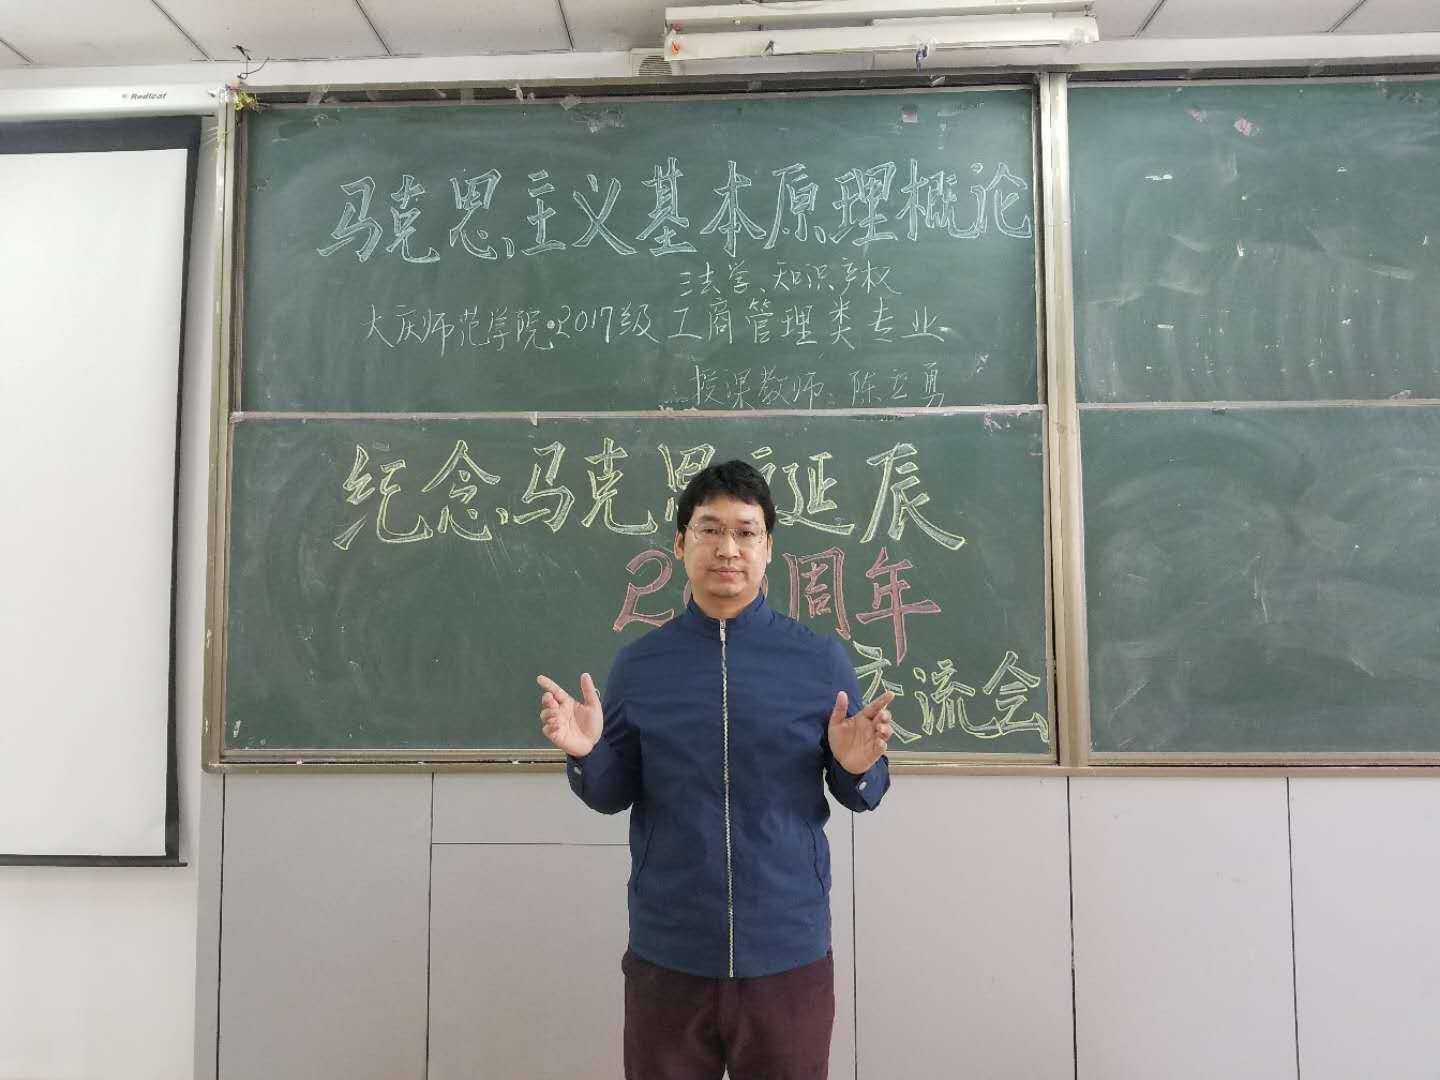 Redleaf
马克思主义基本原理概论
法学、知识产权
大庆师范学院·2017级工商管理类专业
授课教师:陈立勇
纪念马克思延辰
200周年
交流会